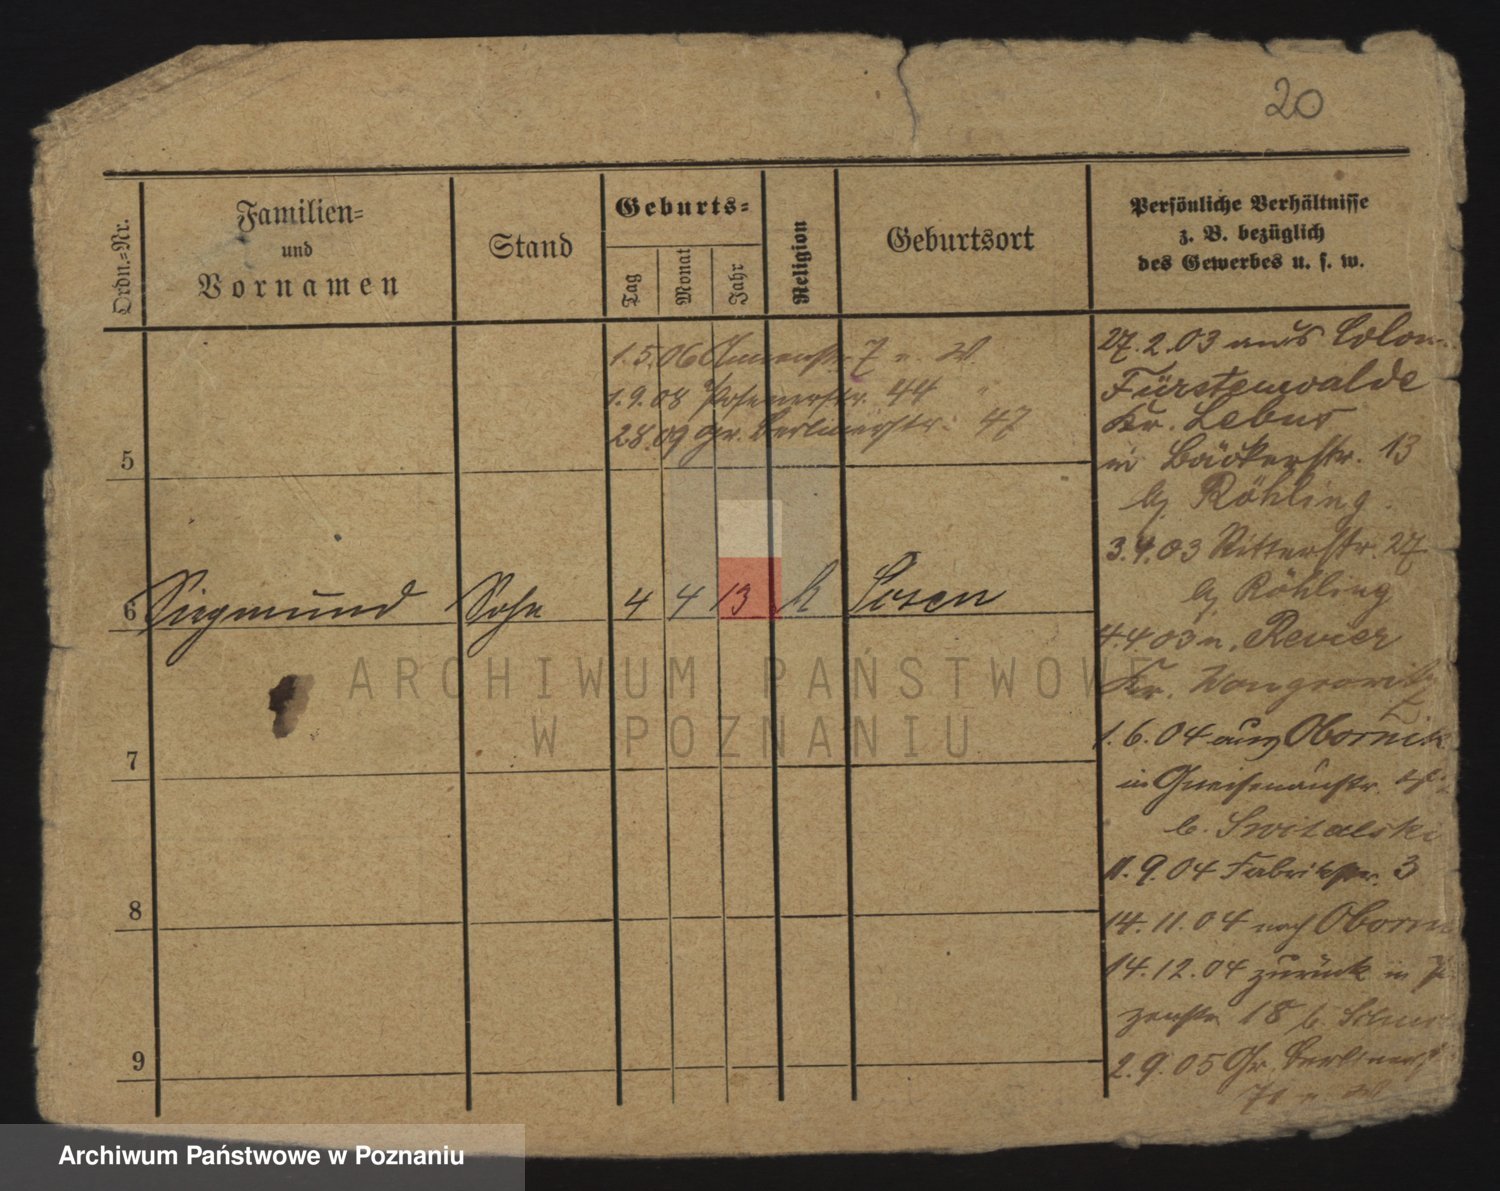 20
Ordn.-Nr.
Familien-
und
Vornamen
Stand
Geburts-
Tag
Monat
Jahr
Religion
Geburtsort
Persönliche Verhältnisse
z. B. bezüglich
des Gewerbes u. s. w.
1.5.06 7 n. W.
1.9.08 Posenerstr. 44 "
28.09 Gr. Berlinerstr. 47
5
6 Siegmund Sohn 4 4 13 k Posen
7
8
9
27.2.03 aus Colon.
Fürstenwalde
Kr. Lebus
in Bäckerstr. 13
bj Röhling.
3.4.03 Ritterstr. 27
bj Röhling
4.4.03 n. Revier
Kr. Wongrowitz
1.6.04 aus Obornik
in Gneisenaustr.
b. Switalski
11.9.04 Fabrikstr. 3
14.11.04 nach Oborni
14.12.04 zurück in
18 b.
2.9.05 Gr. Berliners
71 n. W
ARCHIWUM PAŃSTWOWE
W POZNANIU
Archiwum Państwowe w Poznaniu